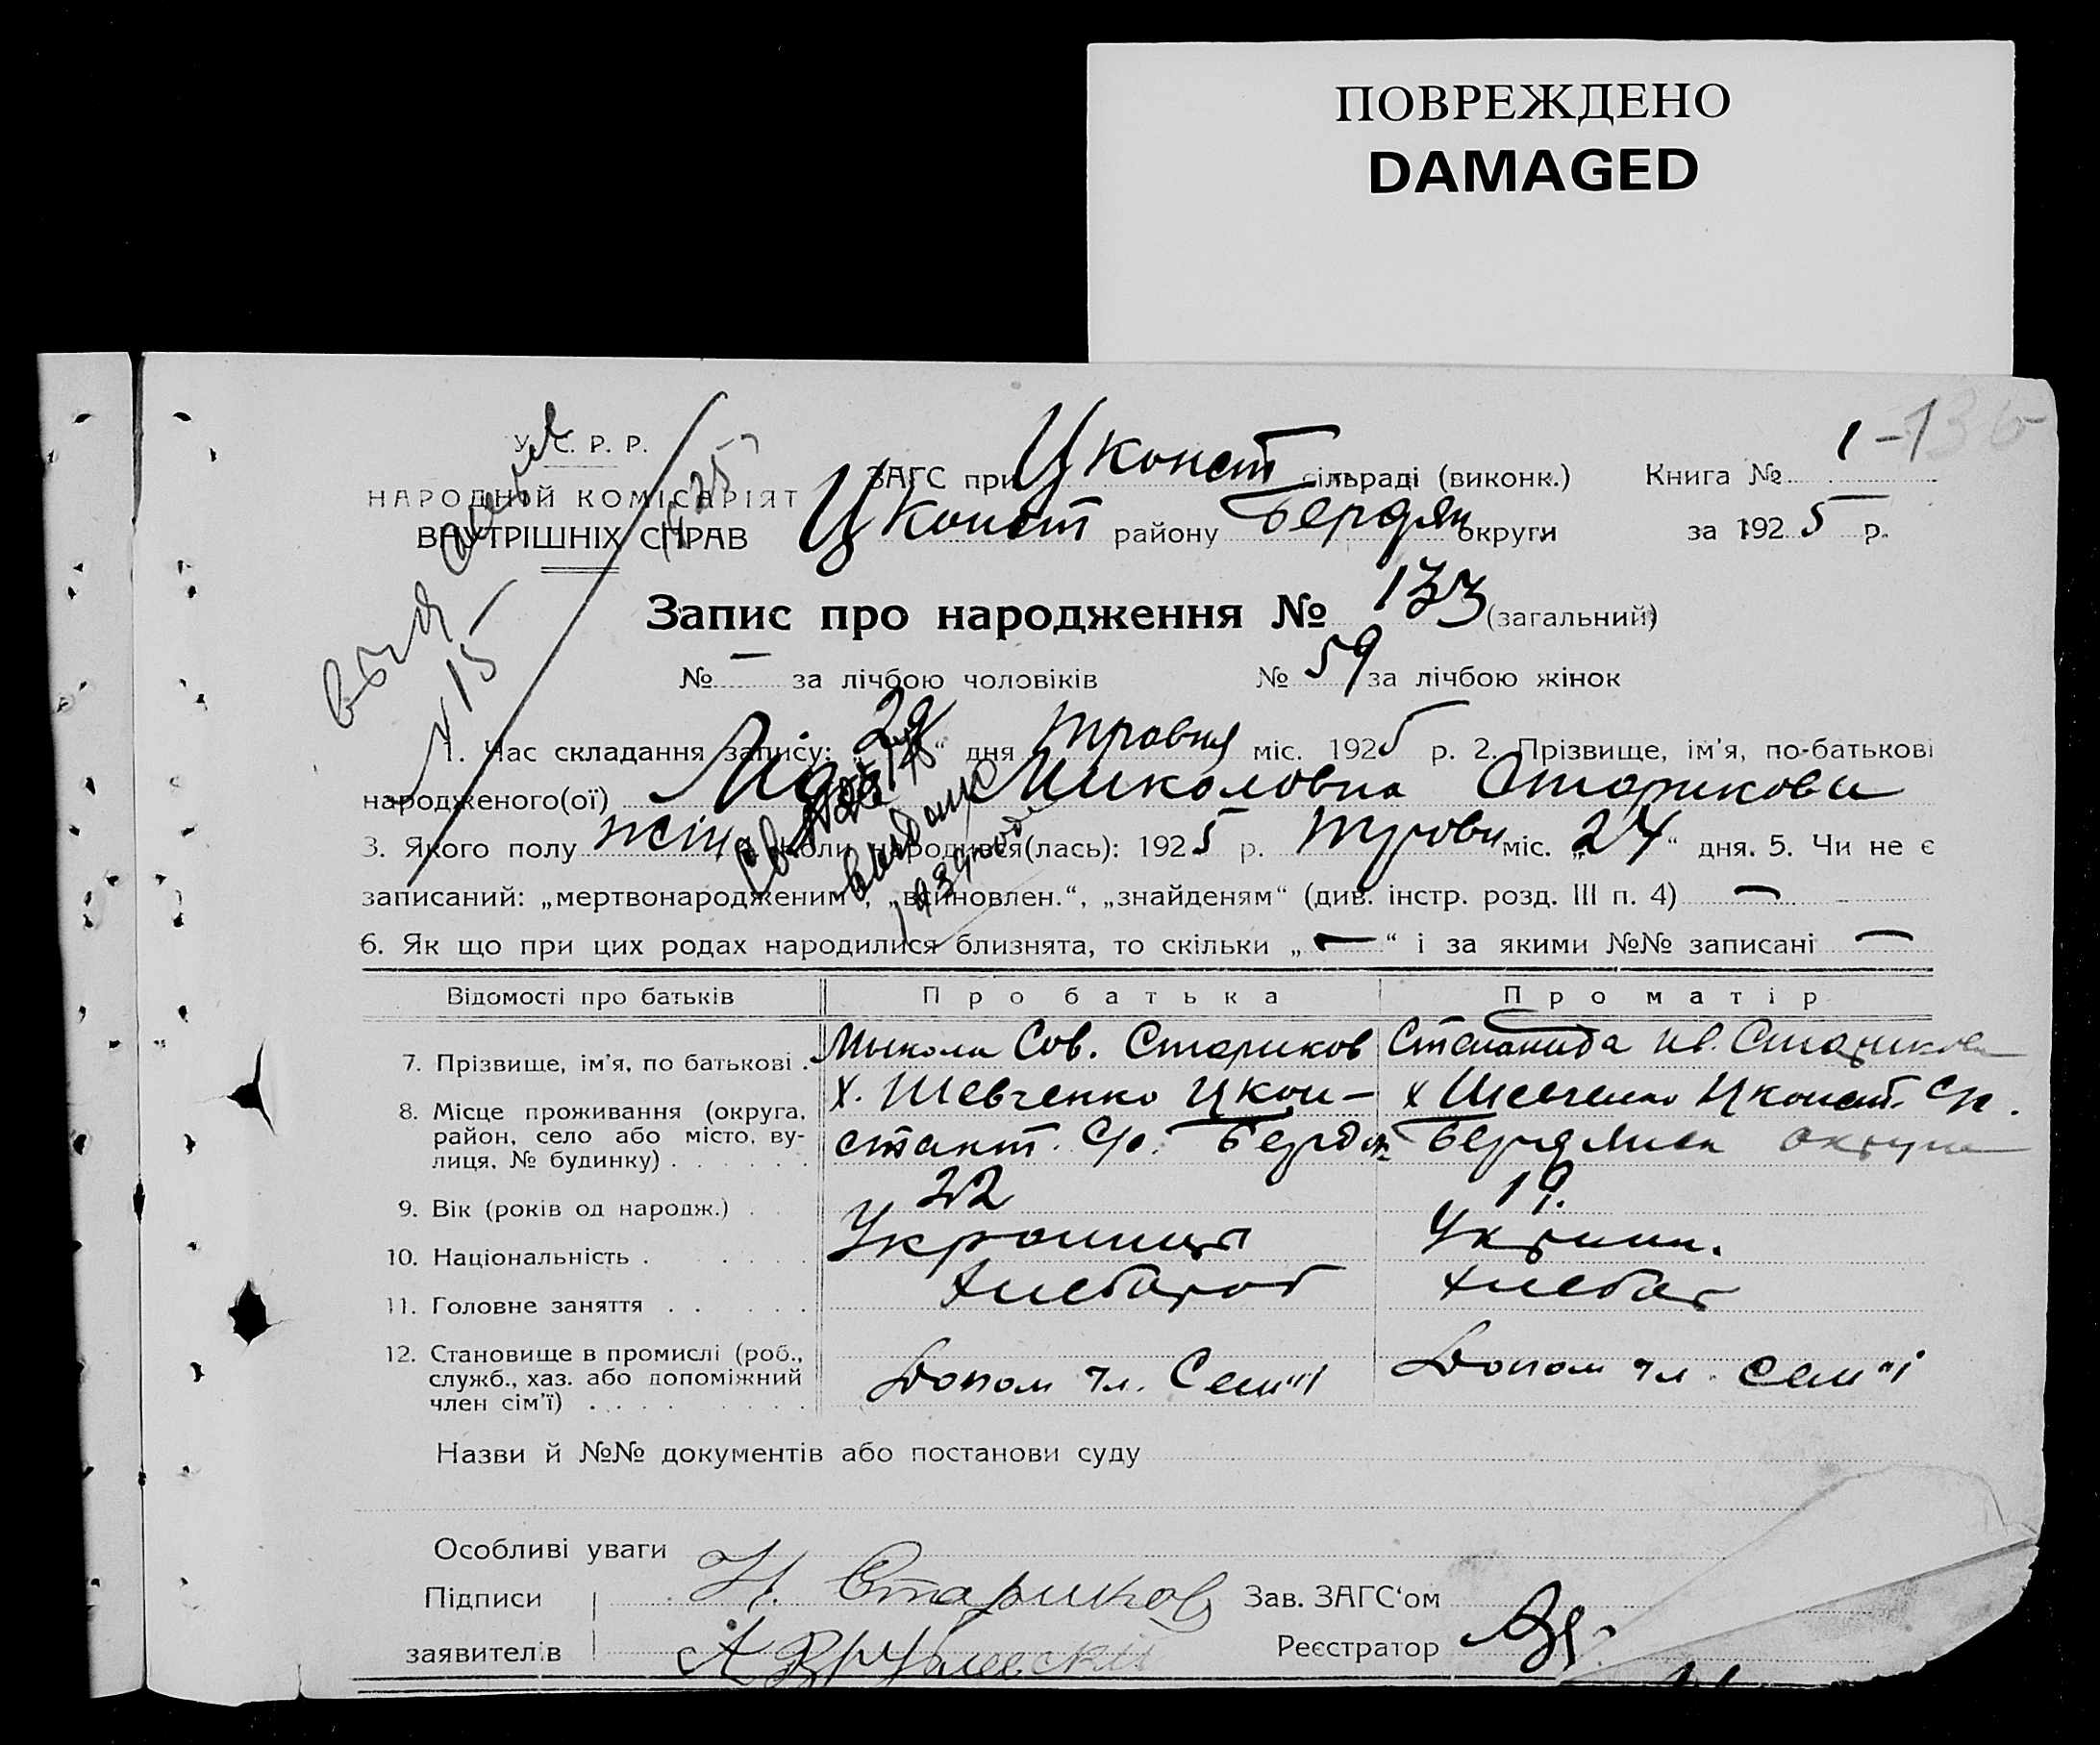 ПОВРЕЖДЕНО
DAMAGED
1-136
У. С. Р. Р.
НАРОДНІЙ КОМІСАРІЯТ
ВНУТРІШНІХ СПРАВ
ЗАГС при Цконст сільраді (виконк.) Книга №
Цконст району Бердян округи за 1925 р.
Запис про народження № 133 (загальний)
№ — за лічбою чоловіків № 59 за лічбою жінок
N 15
1. Час складання запису: 29 “ дня травня міс. 1925 р. 2. Прізвище, ім'я, по-батькові
народженого(ої) Миколовна Старикова
3. Якого полу жін 4. Коли народився(лась): 1925 р. Травн міс. „24“ дня. 5. Чи не є
записаний: „мертвонародженим“, „всиновлен.“, „знайденям“ (див. інстр. розд. III п. 4) —
6. Як що при цих родах народилися близнята, то скільки „—“ і за якими №№ записані —
Відомості про батьків Про батька Про матір
7. Прізвище, ім'я, по батькові . Микола Сав. Стариков Степанида Ив. Старикова
8. Місце проживання (округа, х. Шевченко Цкон- х Шевченко Цконст. С/р.
район, село або місто, ву- стант. С/р. Бердян Бердянск округи
лиця, № будинку) . . . . . .
9. Вік (років од народж.) . 22 19.
10. Національність . . . . . Украинца Украин.
11. Головне заняття . . . . . Хлебороб Хлебор
12. Становище в промислі (роб., Допом чл. Сем"ї Допом чл. сем"ї
служб., хаз. або допоміжний
член сім'ї) . . . .
Назви й №№ документів або постанови суду
Особливі уваги
Підписи Н. Стариков Зав. ЗАГС‘ом
заявителів Реєстратор